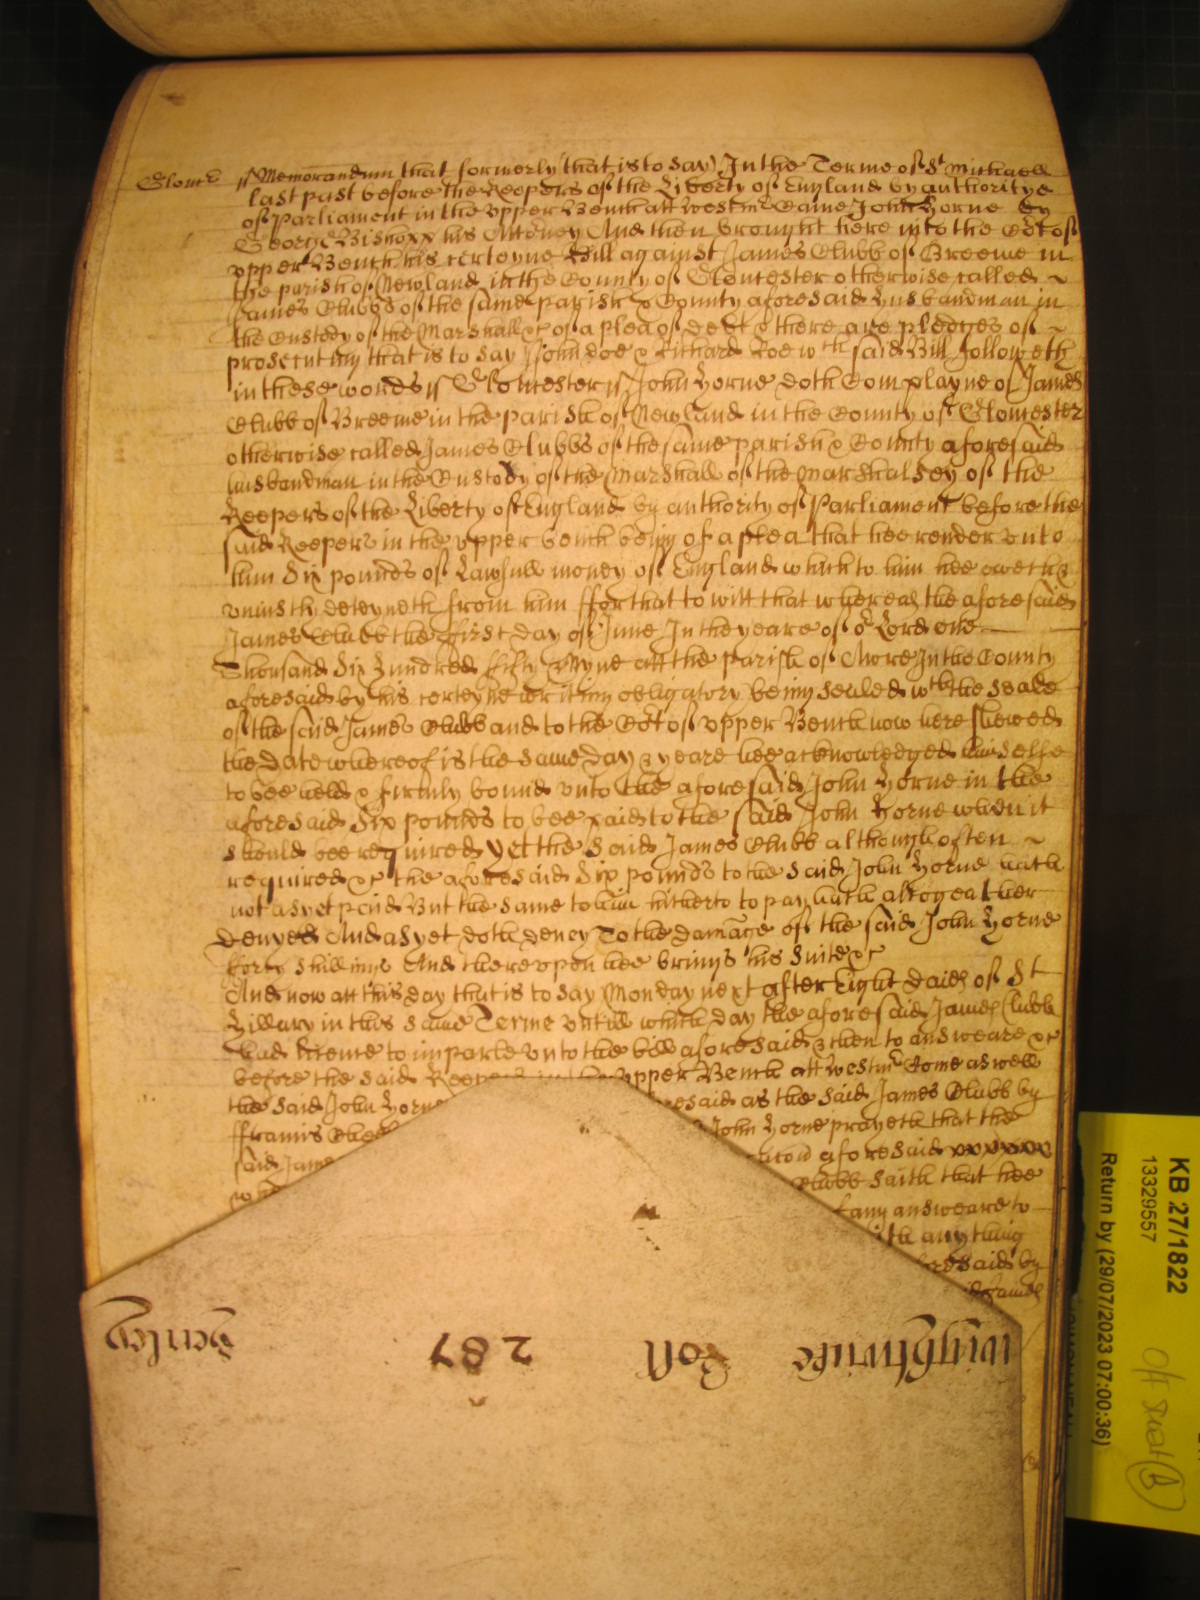 Glouc
// Memorandum that formerly (that is to say) In the Terme of St Michaell
last past before the Keepers of the Liberty of England by authoritye
of Parliament in the upper Bench att Westmr Came John Horne by
George Bishopp his Attorney And then brought here into the Cort of
upper Bench his certeyne Bill against James Clubb of Breeme in
the parish of Newland in the County of Gloucester otherwise called
James Clubbs of the same parish & County aforesaid Husbandman in
the Custody of the Marshall &c of a plea of debt & there are pledges of
prosecuting that is to say John doe & Richard Roe wch said Bill followeth
in these words // Gloucester // John Horne doth Complayne of James
Clubb of Breeme in the parish of Newland in the County of Gloucester
otherwise called James Clubbs of the same parish & County aforesaid
husbandman in the Custody of the Marshall of the Marshalsey of the
Keepers of the Liberty of England by authority of Parliament before the
said Keepers in the upper bench being of a plea that hee render unto
him Six pounds of Lawfull money of England which to him hee oweth &
uniustly deteyneth from him ffor that to witt that whereas the aforesaid
James Clubb the first day of June In the yeare of or Lord one
Thousand Six Hundred fifty & Nyne att the parish of Awre In the County
aforesaid by his certeyne writing obligatory being sealed wth the seale
of the said James Clubb and to the Cort of upper Bench now here shewed
the date whereof is the same day & yeare hee acknowledged himselfe
to bee held & firmly bound unto the aforesaid John Horne in the
aforesaid Six pounds to bee paid to the said John Horne when it
should bee required yet the said James Clubb although often
required &c the aforesaid Six pounds to the said John Horne hath
not as yet paid But the same to him hitherto to pay hath altogeather
denyed And as yet doth deney To the damage of the said John Horne
forty shillings And thereupon hee brings his suite &c
And now att this day that is to say Monday next after Eight daies of St
Hillary in this same Terme untill which day the aforesaid James Clubb
had licence to imparle unto the bill aforesaid & then to answeare &c
before the said Keepers in the upper Bench att Westmr Come aswell
the said John Horne aforesaid as the said James Clubb by
ffrancis John Horne prayeth that the
said James aforesaid
Clubb saith that hee
any answeare to
anything
aforesaid by
James
Wightwicke Roll 287 Henley
KB 27/1822
13329557
Return by (29/07/2023 07:00:36)